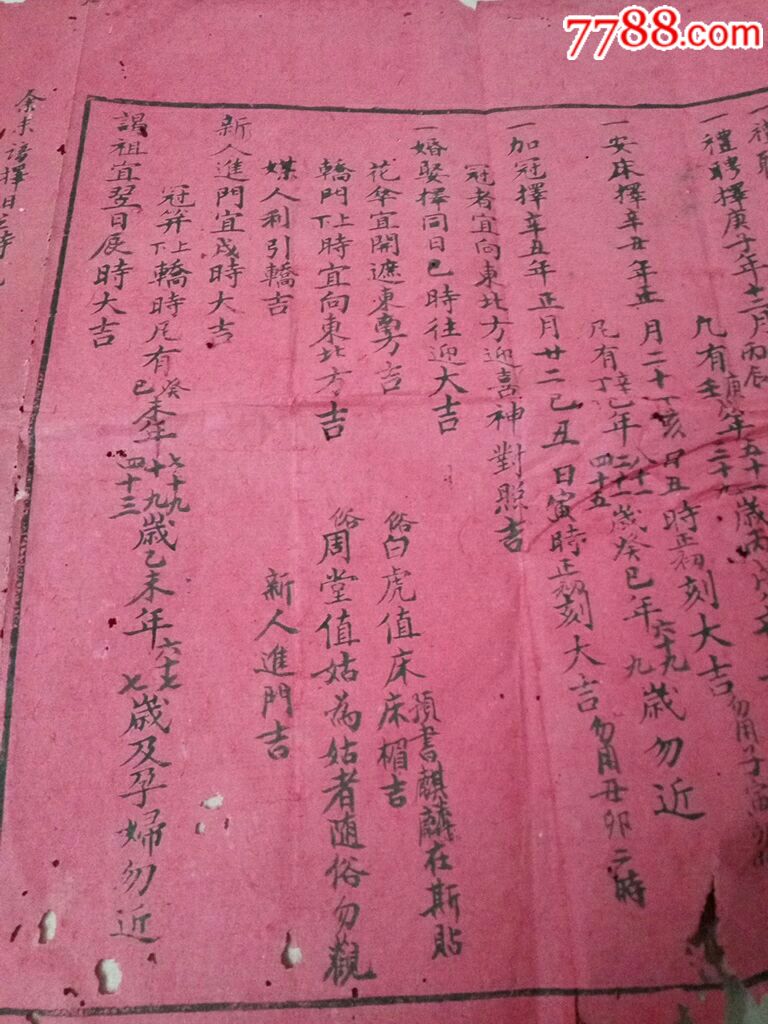 7788.com
一禮聘擇庚子年十二月丙辰
庚 年五十一歲
凡有壬 二十九
勿用子寅
一安床擇辛丑年正月二十丁亥日丑時正初刻大吉
凡有辛丁巳年八十一二十一四十五歲癸巳年六十九九歲勿近
一加冠擇辛丑年正月廿二己丑日寅時正初刻大吉勿用丑卯二時
冠者宜向東北方迎喜神對照吉
一婚娶擇同日巳時往迎大吉
俗白虎值床床楣吉預書麒麟在斯貼
花傘宜開遮東勇方吉
轎門上下時宜向東北方吉
俗周堂值姑為姑者随俗勿觀
媒人利引轎吉
新人進門吉
新人進門宜戌時大吉
冠笄上下轎時凡有癸己未年七十九十九四十三歲乙未年六十七七歲及孕婦勿近
謁祖宜翌日辰時大吉
余未 擇日